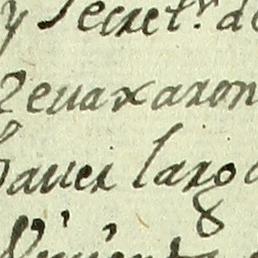 y Secret.r de
Reuaxaron
hauer larg